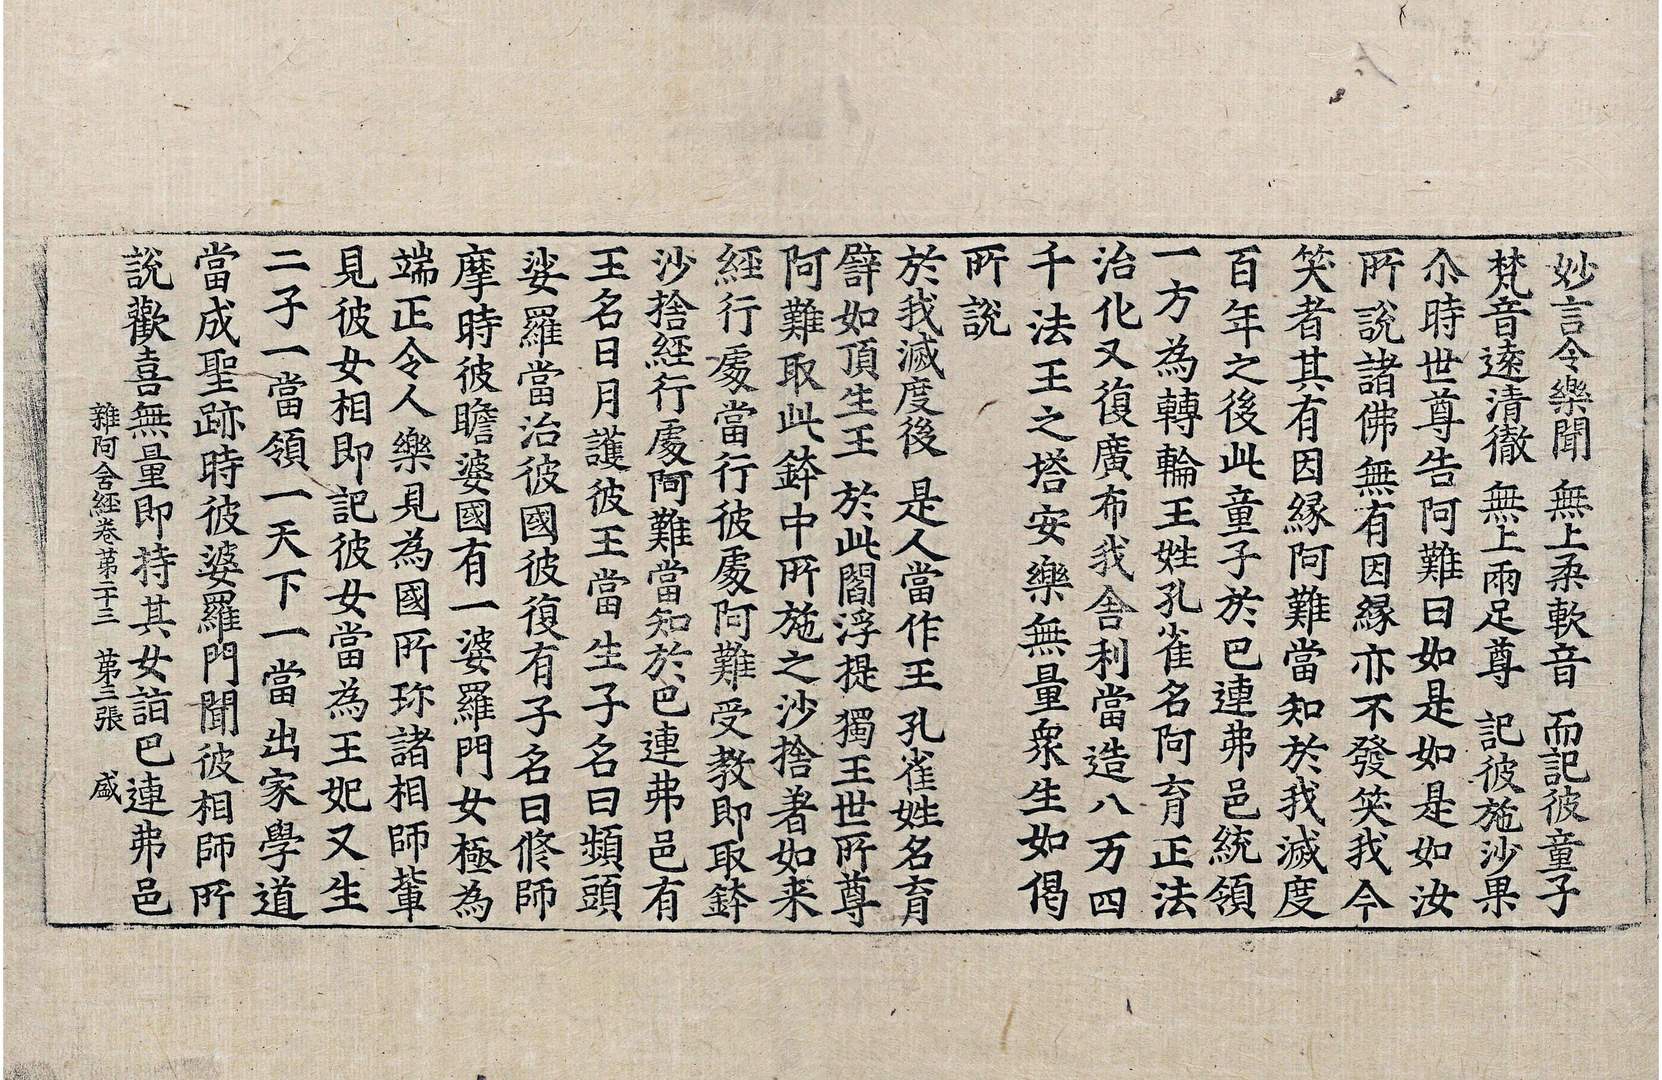 妙言令樂聞 無上柔軟音 而記彼童子
梵音遠清徹 無上兩足尊 記彼施沙果
尒時世尊告阿難曰如是如是如汝
所說諸佛無有因緣亦不發笑我今
笑者其有因緣阿難當知於我滅度
百年之後此童子於巴連弗邑統領
一方為轉輪王姓孔雀名阿育正法
治化又復廣布我舍利當造八万四
千法王之塔安樂無量衆生如偈
所說
於我滅度後 是人當作王 孔雀姓名育
譬如頂生王 於此閻浮提 獨王世所尊
阿難取此鉢中所施之沙捨著如来
經行處當行彼處阿難受教即取鉢
沙捨經行處阿難當知於巴連弗邑有
王名曰月護彼王當生子名曰頻頭
娑羅當治彼國彼復有子名曰修師
摩時彼瞻婆國有一婆羅門女極為
端正令人樂見為國所珎諸相師輩
見彼女相即記彼女當為王妃又生
二子一當領一天下一當出家學道
當成聖跡時彼婆羅門聞彼相師所
說歡喜無量即持其女詣巴連弗邑
雜阿含經卷第二十三 第三張 盛